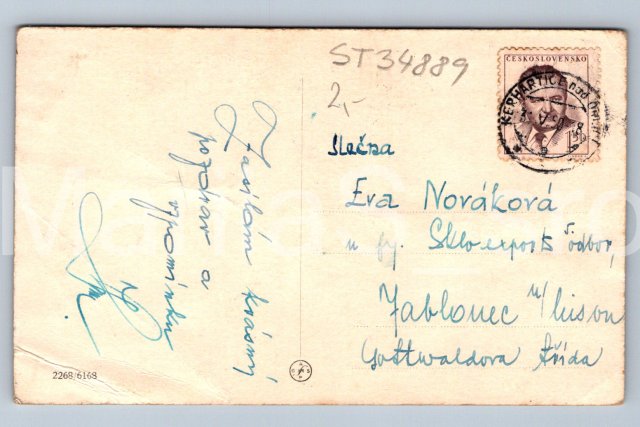 ST34889
2,-
ČESKOSLOVENSKO
KERHARTICE nad ORLICÍ
Zasílám krásný
pozdrav a
vzpomínku
Slečna
Eva Nováková
u fy. Sklo-exports odbor,
Jablonec n/Nisou
Gottwaldova třída
2268/6168